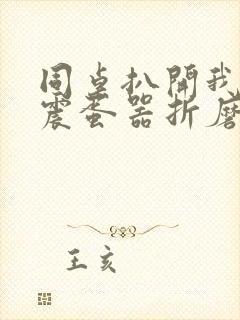 同桌扒開我
震蛋器折磨
王亥